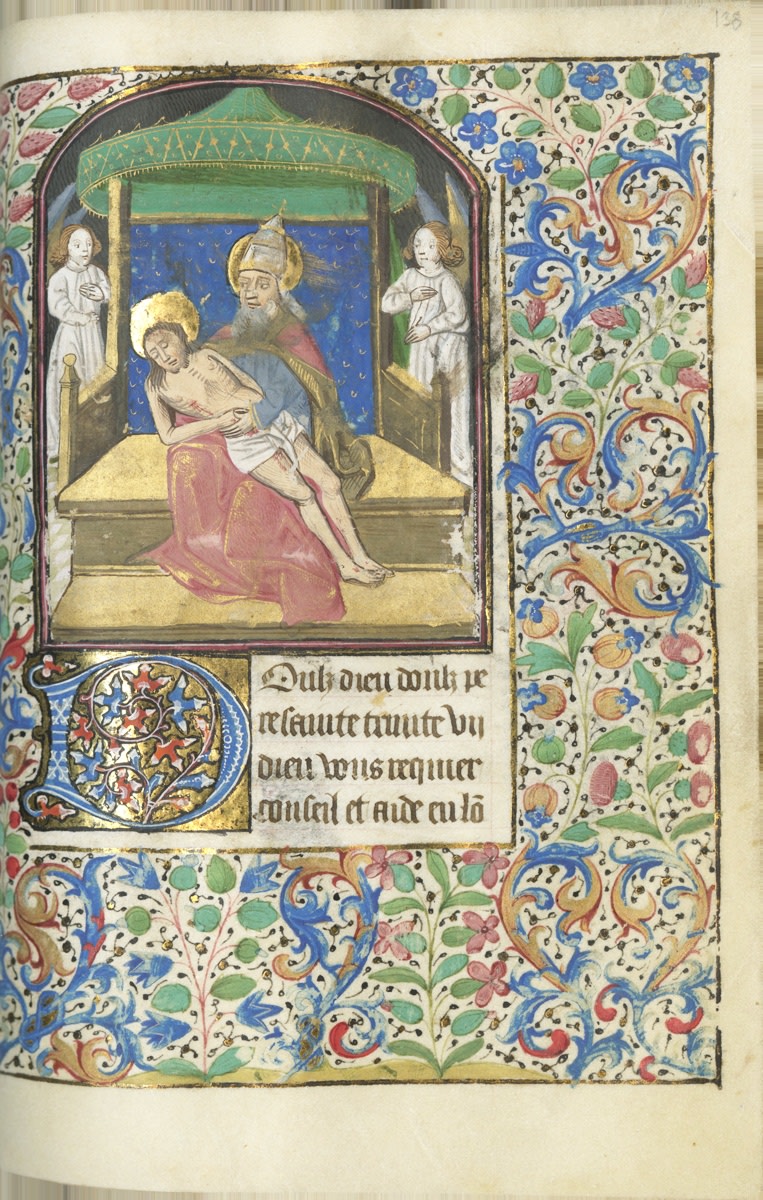 138
Doulz dieu doulz pe
re sainte trinite vn
dieu vous requier
conseil et aide en lō